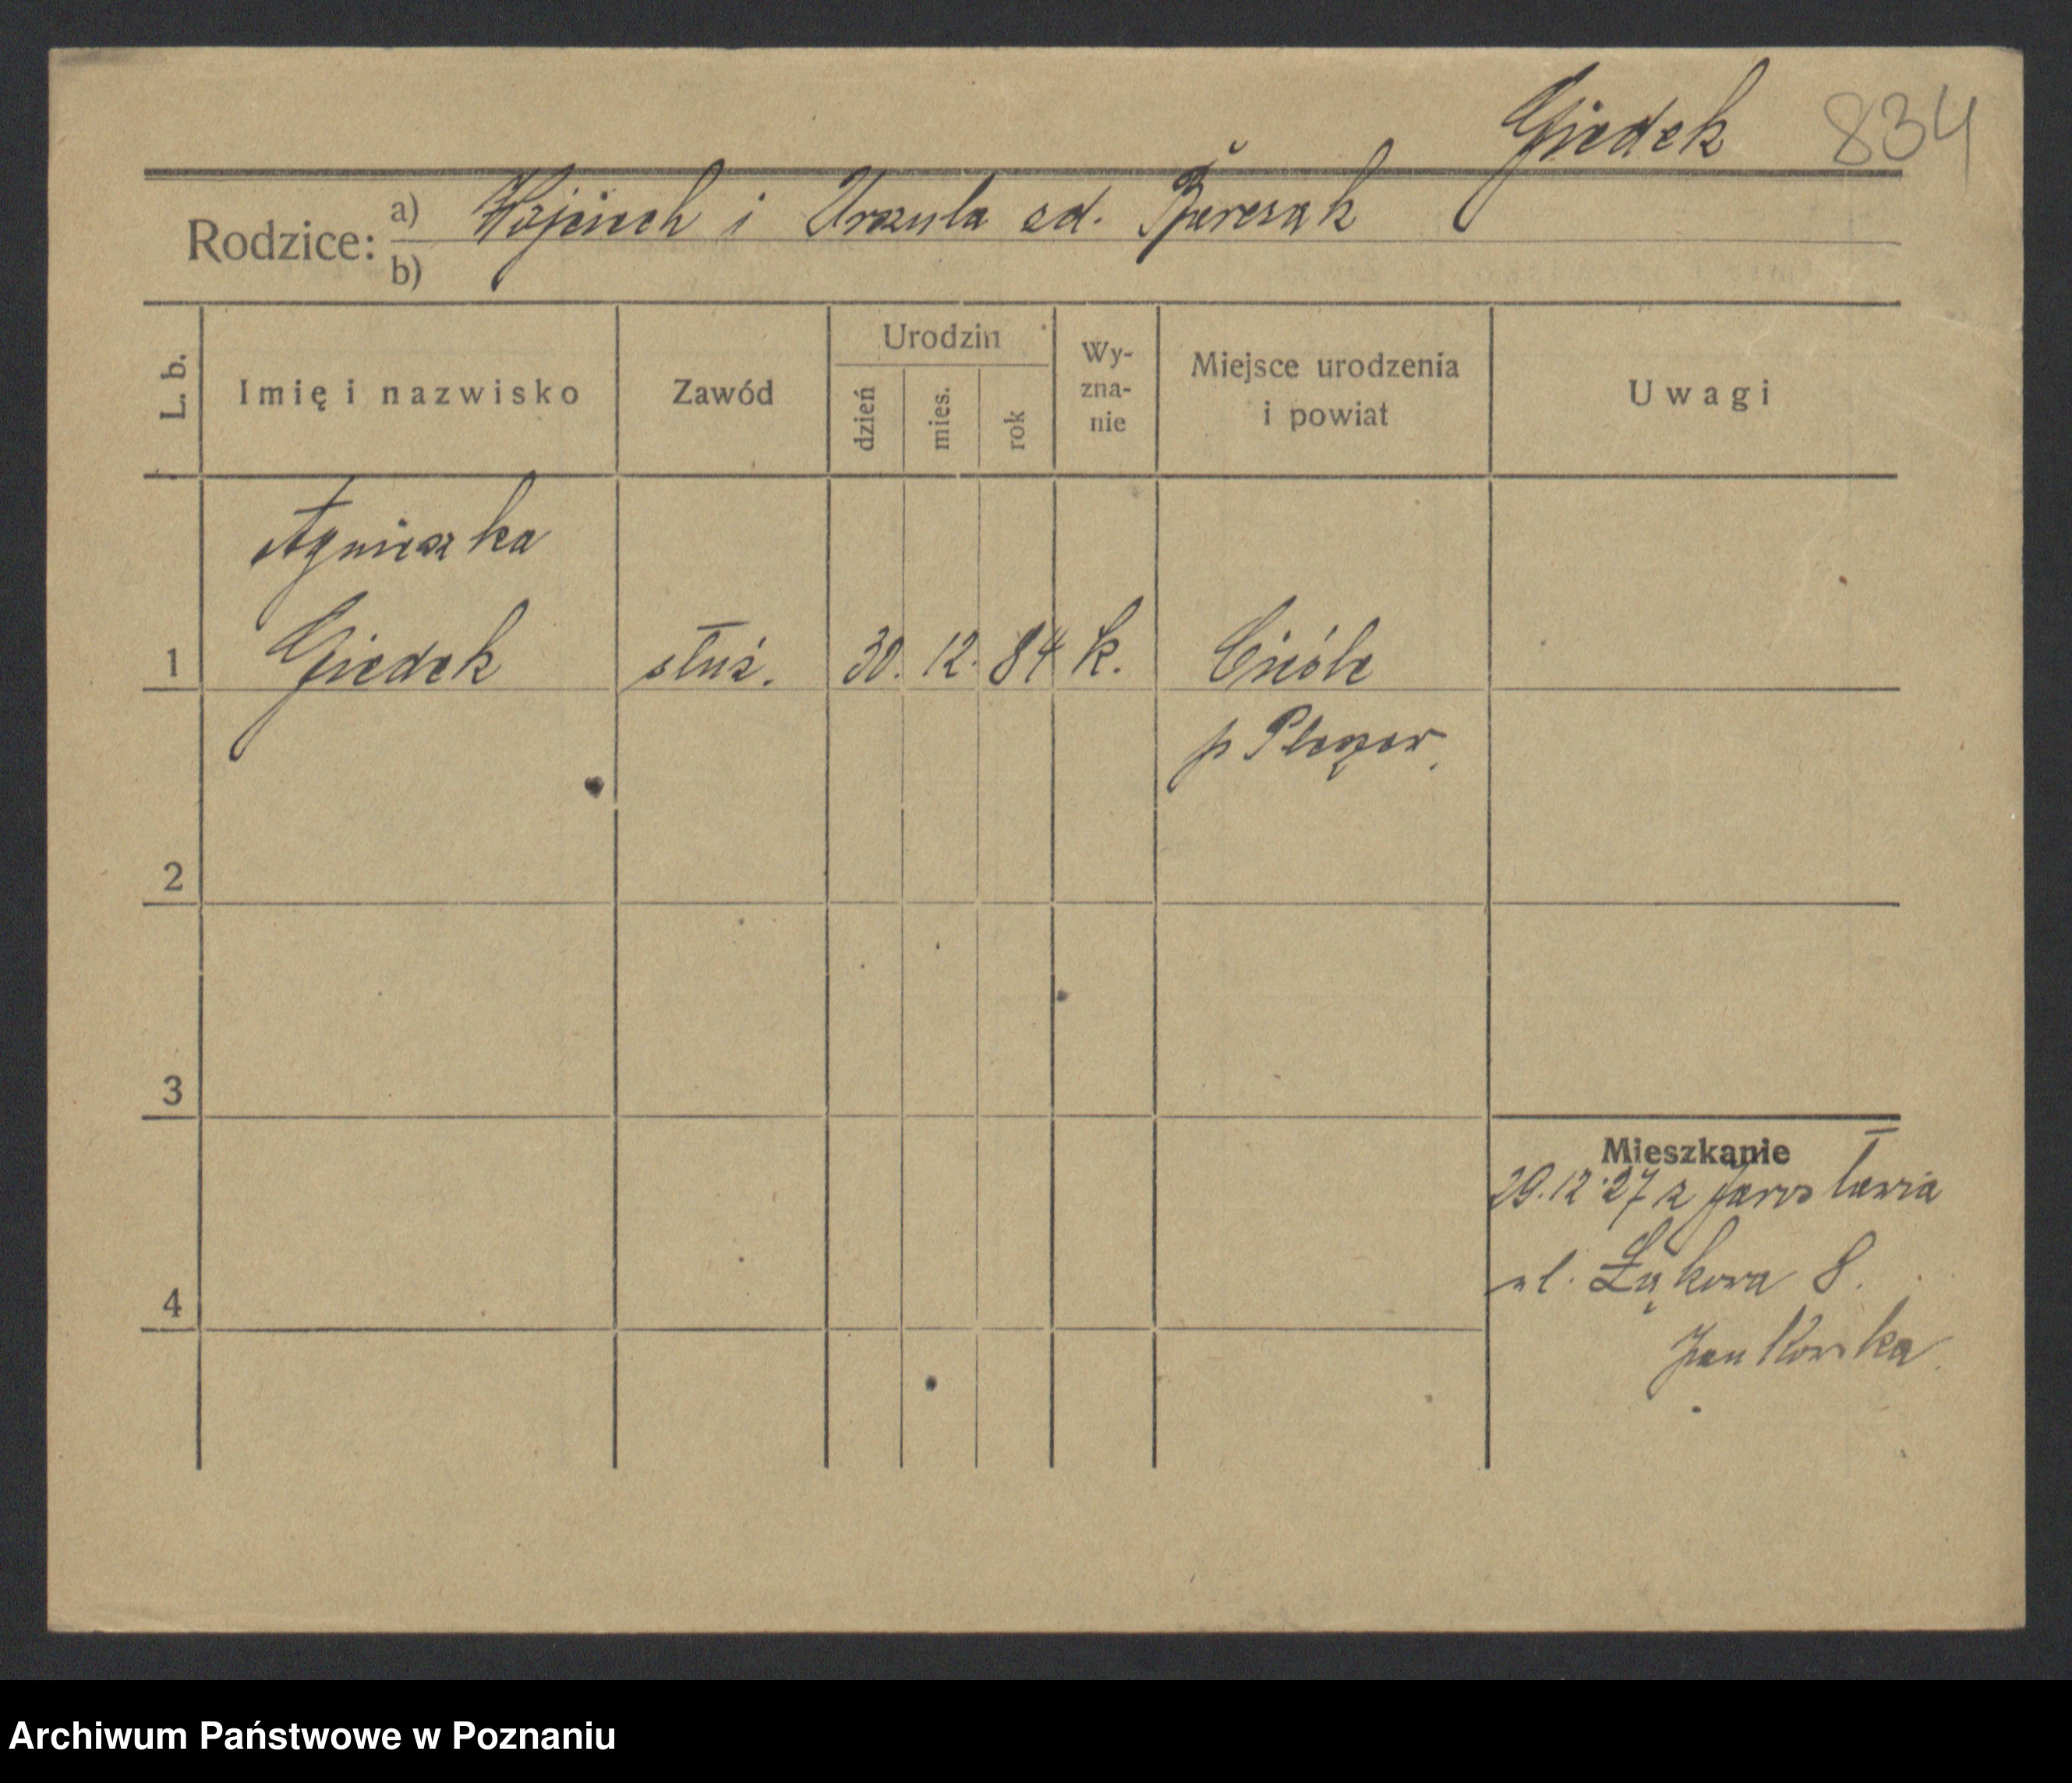 Giedek 834
Rodzice: a) Wojciech i Urszula zd.
b)
L. b. Imię i nazwisko Zawód Urodzin dzień mies. rok Wy-zna-nie Miejsce urodzenia i powiat Uwagi
Agnieszka
1 Giedek służ. 30. 12. 84 k.
p Pleszew.
2
3
Mieszkanie
29.12.27 z Jarosławia
4 ul. Łąkowa 8.
Jankowska
Archiwum Państwowe w Poznaniu